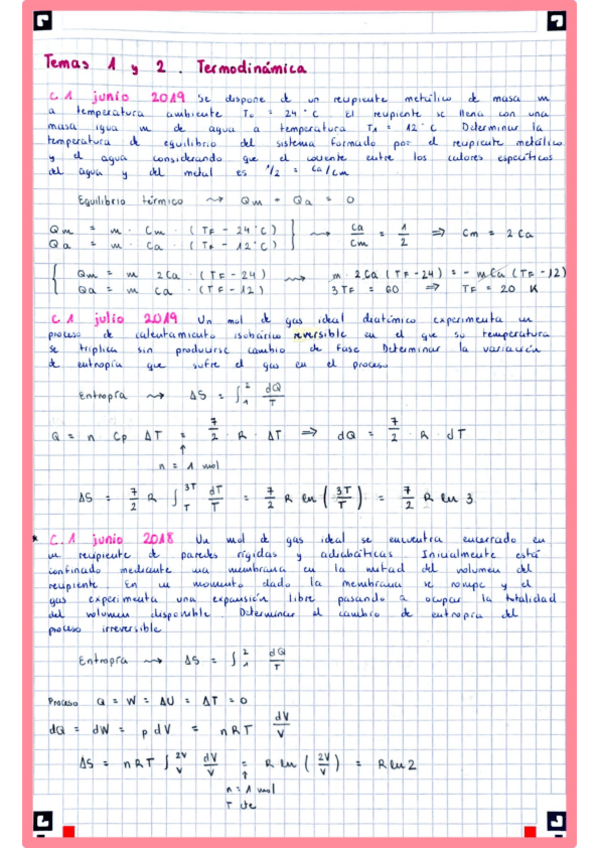 Temas 1 y 2. Termodinámica
C.1 junio 2019 Se dispone de un recipiente metálico de masa m
a temperatura ambiente To = 24°C El recipiente se llena con una
masa igual m de agua a temperatura TA = 12°C Determinar la
temperatura de equilibrio del sistema formado por el recipiente metálico
y el agua considerando que el cociente entre los calores específicos
del agua y del metal es 1/2 = Ca/Cm
Equilibrio térmico ⇝ Qm + Qa = 0
Qm = m · Cm · (TF - 24°C) } ⇝ Ca/Cm = 1/2 ⇒ Cm = 2Ca
Qa = m · Ca · (TF - 12°C)
{ Qm = m 2Ca · (TF - 24) ⇝ m · 2Ca (TF - 24) = - mCa (TF - 12)
Qa = m Ca · (TF - 12) 3TF = 60 ⇒ TF = 20 K
C.1 julio 2019 Un mol de gas ideal diatómico experimenta un
proceso de calentamiento isobárico reversible en el que su temperatura
se triplica sin producirse cambio de fase Determinar la variación
de entropía que sufre el gas en el proceso
Entropía ⇝ ΔS = ∫₁² dQ/T
Q = n Cp ΔT = 7/2 · R · ΔT ⇒ dQ = 7/2 · R dT
↑
n = 1 mol
ΔS = 7/2 R ∫_T^3T dT/T = 7/2 R ln (3T/T) = 7/2 R ln 3
* C.1 junio 2018 Un mol de gas ideal se encuentra encerrado en
un recipiente de paredes rígidas y adiabáticas Inicialmente está
confinado mediante una membrana en la mitad del volumen del
recipiente. En un momento dado la membrana se rompe y el
gas experimenta una expansión libre pasando a ocupar la totalidad
del volumen disponible. Determinar el cambio de entropía del
proceso irreversible
Entropía ⇝ ΔS = ∫₁² dQ/T
Proceso Q = W = ΔU = ΔT = 0
dQ = dW = p dV = nRT dV/V
ΔS = nRT ∫_V^2V dV/V = R ln (2V/V) = R ln 2
↑
n = 1 mol
T cte